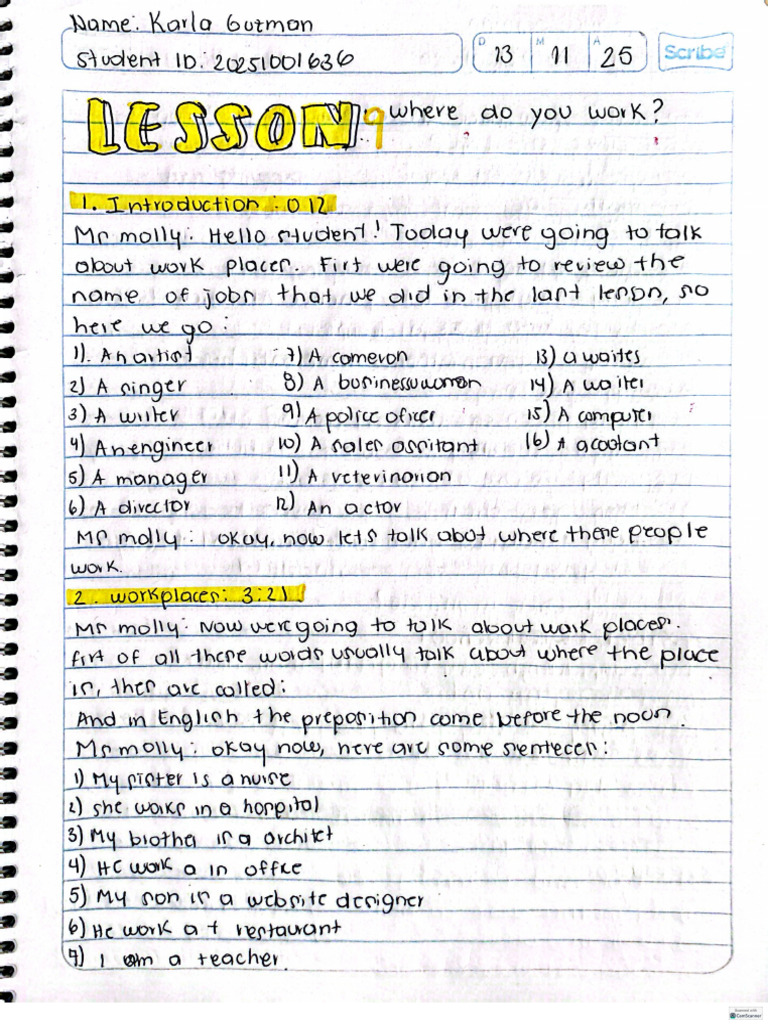 Name: Karla Guzman
Student ID: 20251001636
D 13 M 11 A 25 Scribe
LESSON 9 where do you work?
1. Introduction: 0 12
Mr molly: Hello student! Today were going to talk
about work places. Firt were going to review the
name of jobs that we did in the last lesson, so
here we go:
1). An artist 7) A cameron 13) a waites
2) A singer 8) A businesswoman 14) A waiter
3) A writer 9) A police oficer 15) A computer
4) An engineer 10) A sales assitant 16) A acootant
5) A manager 11) A veterinarian
6) A director 12) An actor
Mr molly: okay, now lets talk abot where these people
work.
2. workplaces: 3:21
Mr molly: Now were going to talk about work places.
firt of all these words usually talk about where the place
is, thes are called:
And in English the preposition come before the noon.
Mr molly: okay now, here are some senteces:
1) My sister is a nurse
2) she works in a hospital
3) My brother is a architet
4) He work a in office
5) My son is a website designer
6) He work at restaurant
7) I am a teacher.
Scanned with
CamScanner